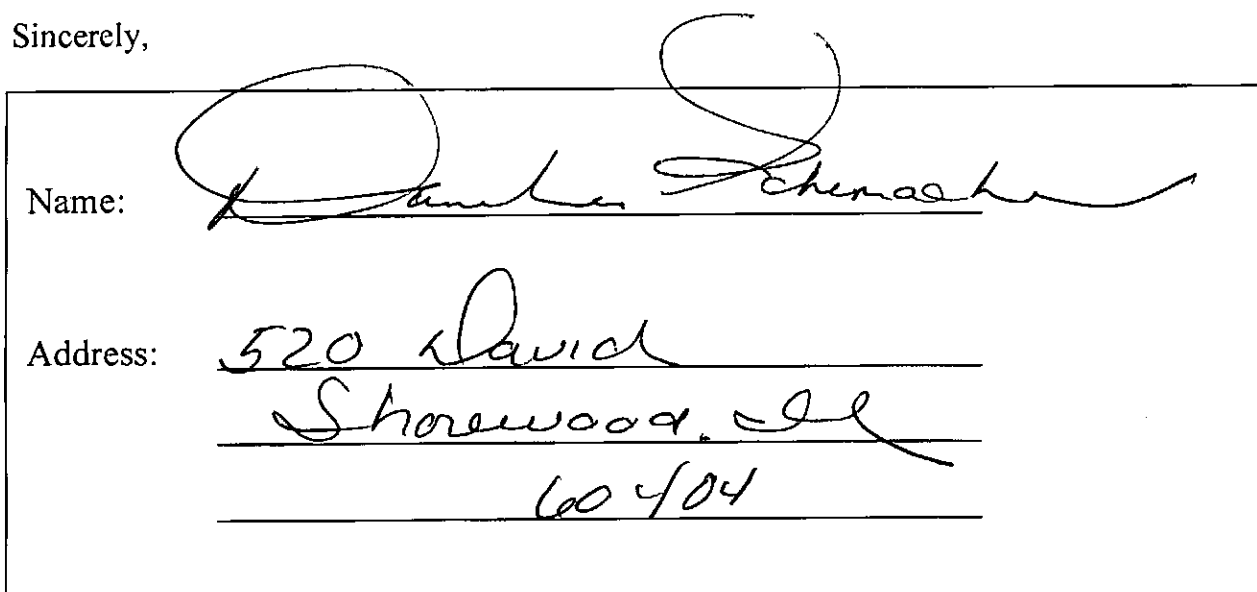 Sincerely,
Name: Schumacher
Address: 520 David
Shorewood. Il
60404